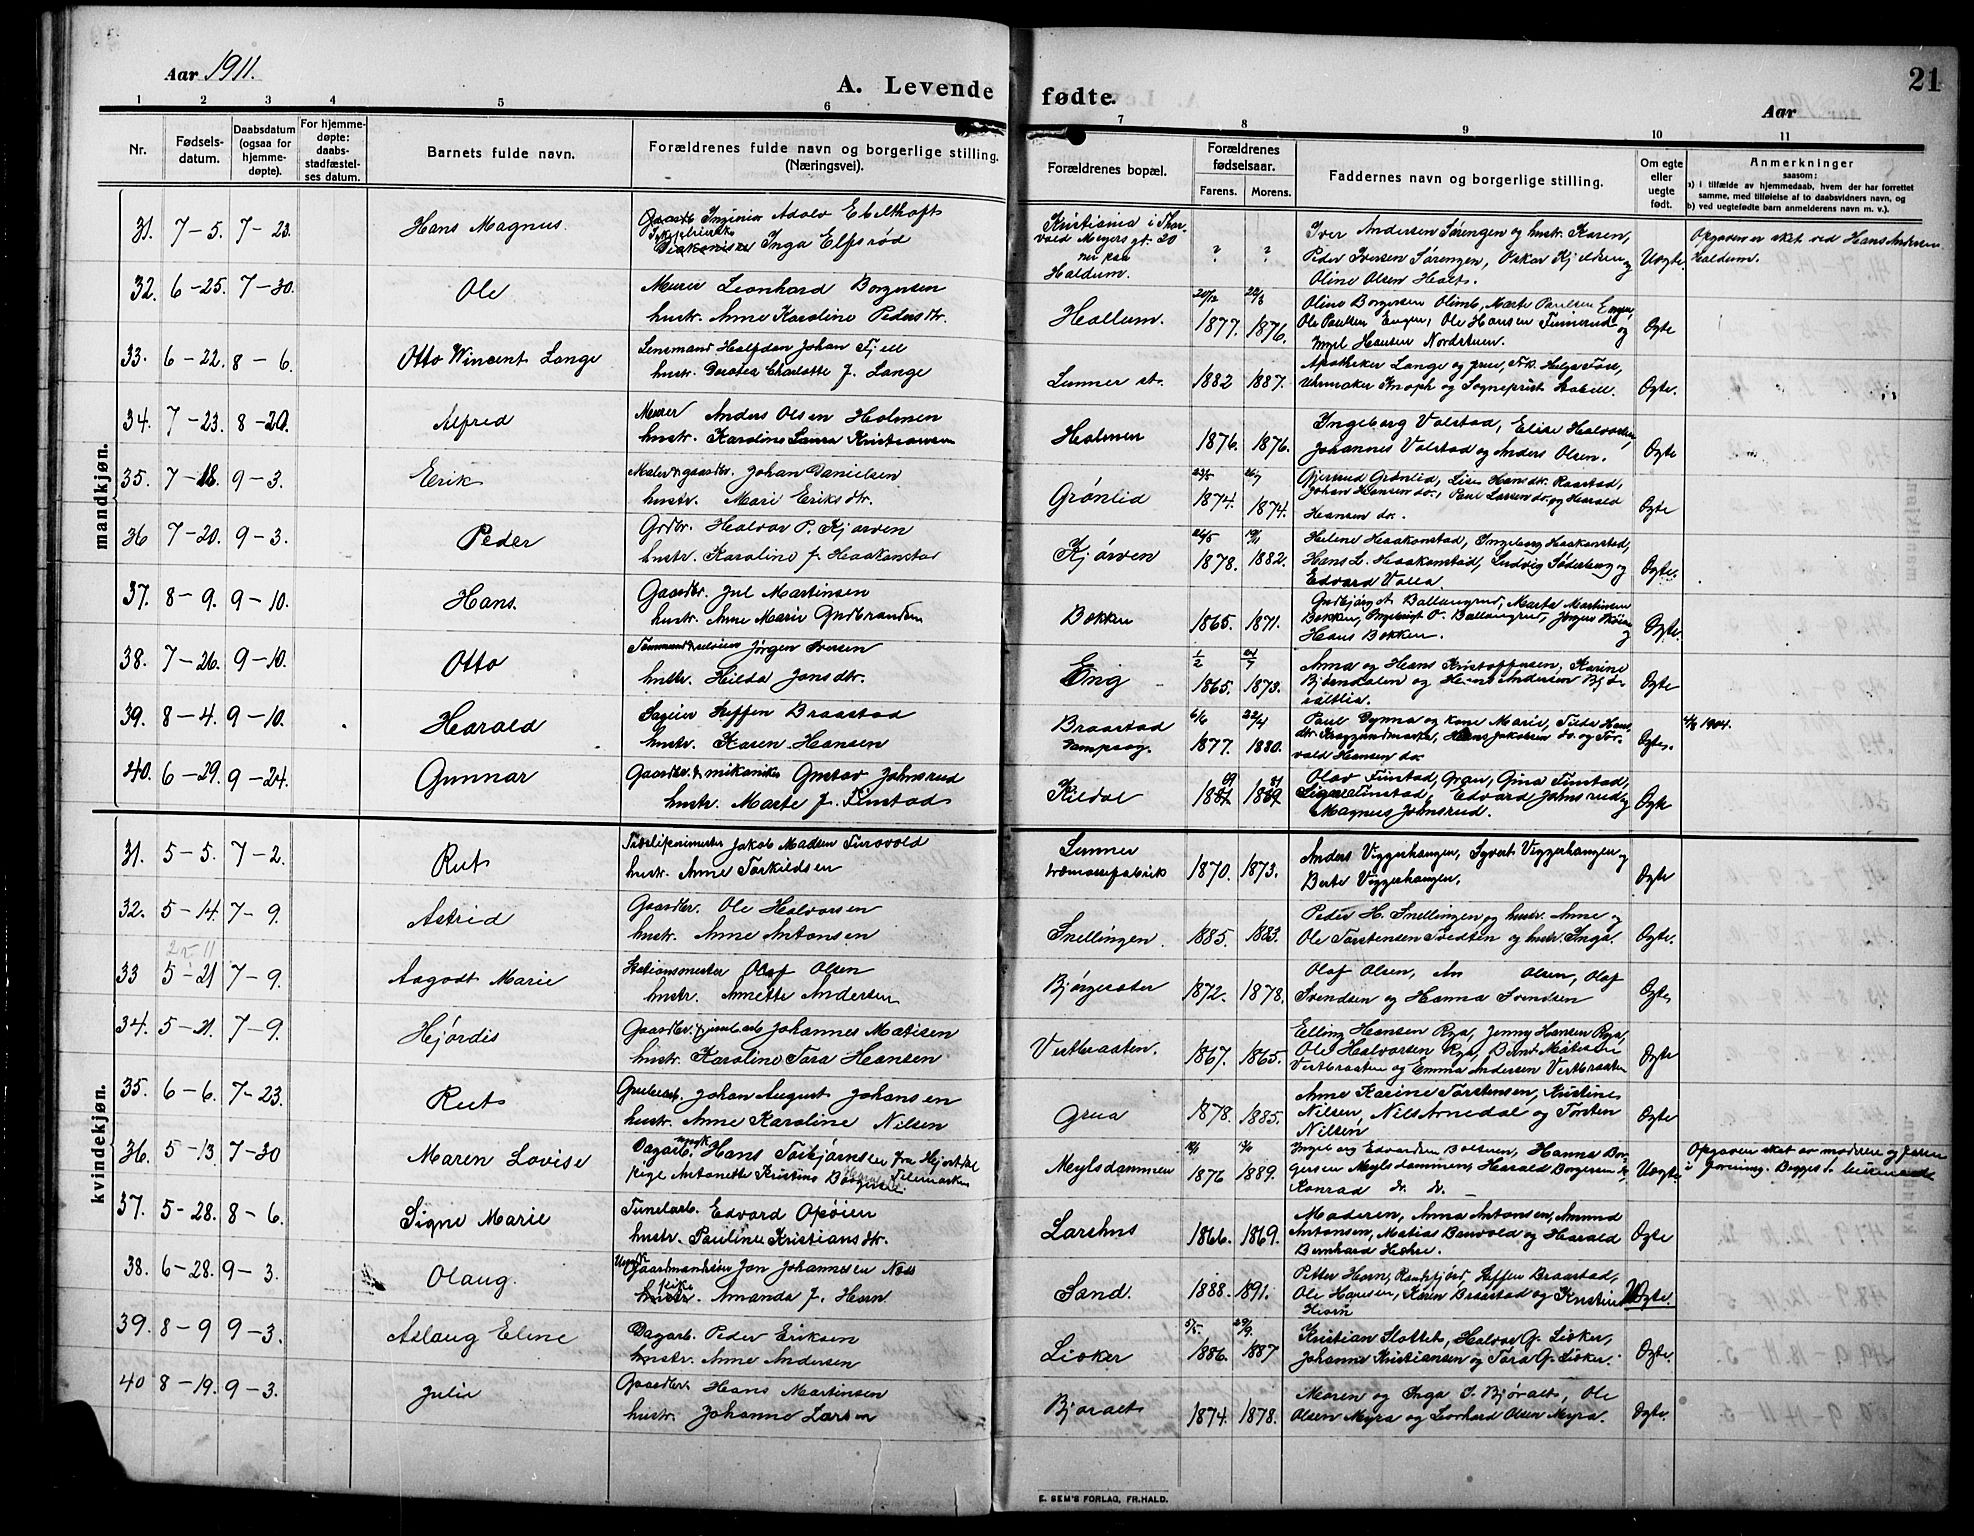 Aar 1911.
A. Levende fødte.
Aar
21
1 2 3 4 5 6 7 8 9 10 11
Nr.
Fødsels-
datum.
Daabsdatum
(ogsaa for
hjemme-
døpte).
For hjemme-
døpte:
daabs-
stadfæstel-
ses datum.
Barnets fulde navn.
Forældrenes fulde navn og borgerlige stilling.
(Næringsvei).
Forældrenes bopæl.
Forældrenes
fødselsaar.
Farens. Morens.
Faddernes navn og borgerlige stilling.
Om egte
eller
uegte
født.
Anmerkninger
saasom:
a) i tilfælde av hjemmedaab, hvem der har forrettet
samme, med tilføielse af to daabsvidners navn, og
b) ved uegtefødte barn anmelderens navn m. v.).
mandkjøn.
31. 7-5. 7-23. Hans Magnus.
Ingeniør Adolv Ebelthoft
Inga Elfsrød
Kristiania i Thor-
vald Meyers gt. 20
nu paa
Haldum.
? ?
Iver Andersen Sørengen og hustr. Karen,
Peder Iversen Sørengen, Oskar Kjeldsen og
Oline Olsen Holt.
Uegte.
Opgaven er sket ved Hans Andersen
Haldum.
32. 6-25. 7-30. Ole
Murer Leonhard Borgersen
hustr. Anne Karoline Pedersdtr.
Hallum.
1877. 1876.
Oline Borgersen Olimb, Marte Paulsen Engen,
Ole Paulsen Engen, Ole Hansen Tømerud og
Ingel Hansen Nordstuen.
Egte
33. 6-22. 8-6. Otto Wincent Lange
Lensmand Halfdan Johan Fjell
hustr. Dorotea Charlotte f. Lange
Lunner st.
1882 1887.
Apotheker Lange og frue, Frk. Helga Foss,
Uhrmaker Knoph og Sogneprest Habell.
Egte.
34. 7-23. 8-20. Alfred
Murer Anders Olsen Holmen
hustr. Karoline Laura Kristiansen
Holmen
1876. 1876.
Ingeborg Volstad, Elise Halvorsen,
Johannes Volstad og Anders Olsen.
Egte
35. 7-18. 9-3. Erik
Maler & gaardbr. Johan Danielsen
hustr. Mari Eriksdtr.
Grønlid
23/5
1874. 1874.
Gjertrud Grønlid, Lise Hansdtr. Raastad,
Johan Hansen do., Paul Larsen do. og Harald
Hansen do.
Egte
36 7-20. 9-3. Peder
Grdbr. Halvor P. Kjørven
hustr. Karoline f. Haakenstad
Kjørven
1878. 1882.
Helene Haakenstad, Ingeborg Haakenstad,
Hans L. Haakenstad, Ludvig Søderberg og
Edvard Volla
Egte.
37. 8-9. 9-10. Hans.
Gaardbr. Jul Martinsen
hustr. Anne Marie Gudbrandsen
Bokken
1865. 1871.
Gudbjørg A. Ballangrud, Marta Martinsen
Bokken, Ingebrigt O. Ballangrud, Jørgen Skøien og
Hans Bokken.
Egte.
38. 7-26. 9-10. Otto
Jørgen Iversen
hustr. Hilda Jonsdtr.
Eng
1/2
1865. 1873.
Anna og Hans Kristoffersen, Karine
Bjørndalen og Hans Andersen
Egte
39. 8-4. 9-10. Harald
Sageier Steffen Braastad
hustr. Karen Hansen
Braastad
Dampsag.
6/6 22/4
1877. 1880.
Paul Gynna og kone Marie, Tilda Hans-
dtr. Kraggerudmarka, Hans Jakobsen do. og Tor-
vald Hansen do.
Egte.
1904.
40. 6-29. 9-24. Gunnar
Gaardbr. & mekaniker Gustav Johnsrud
hustr. Marte f. Finstad
Kildal
Olav Finstad, Gran, Gina Finstad,
Finstad, Edvard Johnsrud og
Magnus Johnsrud.
Egte
kvindekjøn.
31. 5-5. 7-2. Rut
Jakob Madsen Furovold
hustr. Anne Torkildsen
Lunner
træmassefabrik
1870. 1873.
Anders Viggerhaugen, Syvert Viggerhaugen og
Berte Viggerhaugen.
Egte
32. 5-14. 7-9. Astrid
Gaardbr. Ole Halvorsen
hustr. Anne Antonsen
Snellingen.
1885. 1883.
Peder H. Snellingen og hustr. Anne og
Ole Torstensen Tvedten og hustr Inga.
Egte.
25 11
33 5-21 7-9. Aagodt Marie
Stationsmester Olaf Olsen
hustr. Annette Andersen
Bjørgeseter
1872. 1878.
Olaf Olsen, An Olsen, Olaf
Svendsen og Hanna Svendsen
Egte
34. 5-21. 7-9. Hjørdis
Gaardbr. Johannes Matisen
hustr. Karoline Tora Hansen
Vestbraaten.
1867. 1865.
Elling Hansen Rya, Jenny Hansen Rya,
Ole Halvorsen Rya, Bernt Matisen
Vestbraaten og Emma Andersen Vestbraaten
Egte
35. 6-6. 7-23. Rut
Grubearb. Johan August Johansen
hustr. Anne Karoline Nilsen
Grua
1878. 1885.
Anne Karine Torstensen, Kristine
Nilsen, Nils Arnedal og Torsten
Nilsen
Egte
36. 5-13. 7-30 Maren Lovise
Dagarb. ungk. Hans Torbjørnsen fra Hjartdal
pige Antonette Kristine Borgersen Telemarken
Meylsdammen
1876 1889.
Ingel og Edvardine Bolstun, Hanna Bor-
gersen Meylsdammen, Harald Borgersen do.
Konrad do. do.
Uegte
Opgaven sket av moderen og faren
i forening. Begges bekjendt
37. 5-28. 8-6. Signe Marie
Tunelarb. Edvard Opøien
hustr. Pauline Kristiansdtr.
Larshus
1866. 1869.
Moderen, Anna Antonsen, Amund
Antonsen, Matias Bauvold og Harald
Bernhard Hekne.
Egte
38. 6-28. 9-3. Olaug.
Ungk. Gaardmandssøn Jon Johannesen Næss
pike hustr. Amanda f. Horn
Sand.
1888. 1891.
Petter Horn, Randsfjord, Steffen Braastad,
Ole Hansen, Karen Braastad og Kristine
Hiorn
Uegte.
39. 8-9 9-3. Aslaug Eline
Dagarb. Peder Eriksen
hustr. Anne Andersen
Lioker
5/5. 29/9.
1886. 1887
Kristian Slottet, Halvor G. Lioker,
Johanne Kristiansen og Tora G. Lioker.
Egte.
40 8-19. 9-3. Julie
Gaardbr. Hans Martinsen
hustr. Johanne Larsen
Bjøralt
1874. 1878.
Maren og Inga S. Bjøralt, Ole
Olsen Myra og Leonhard Olsen Myra.
Egte.
E. SEM'S FORLAG, FR.HALD.